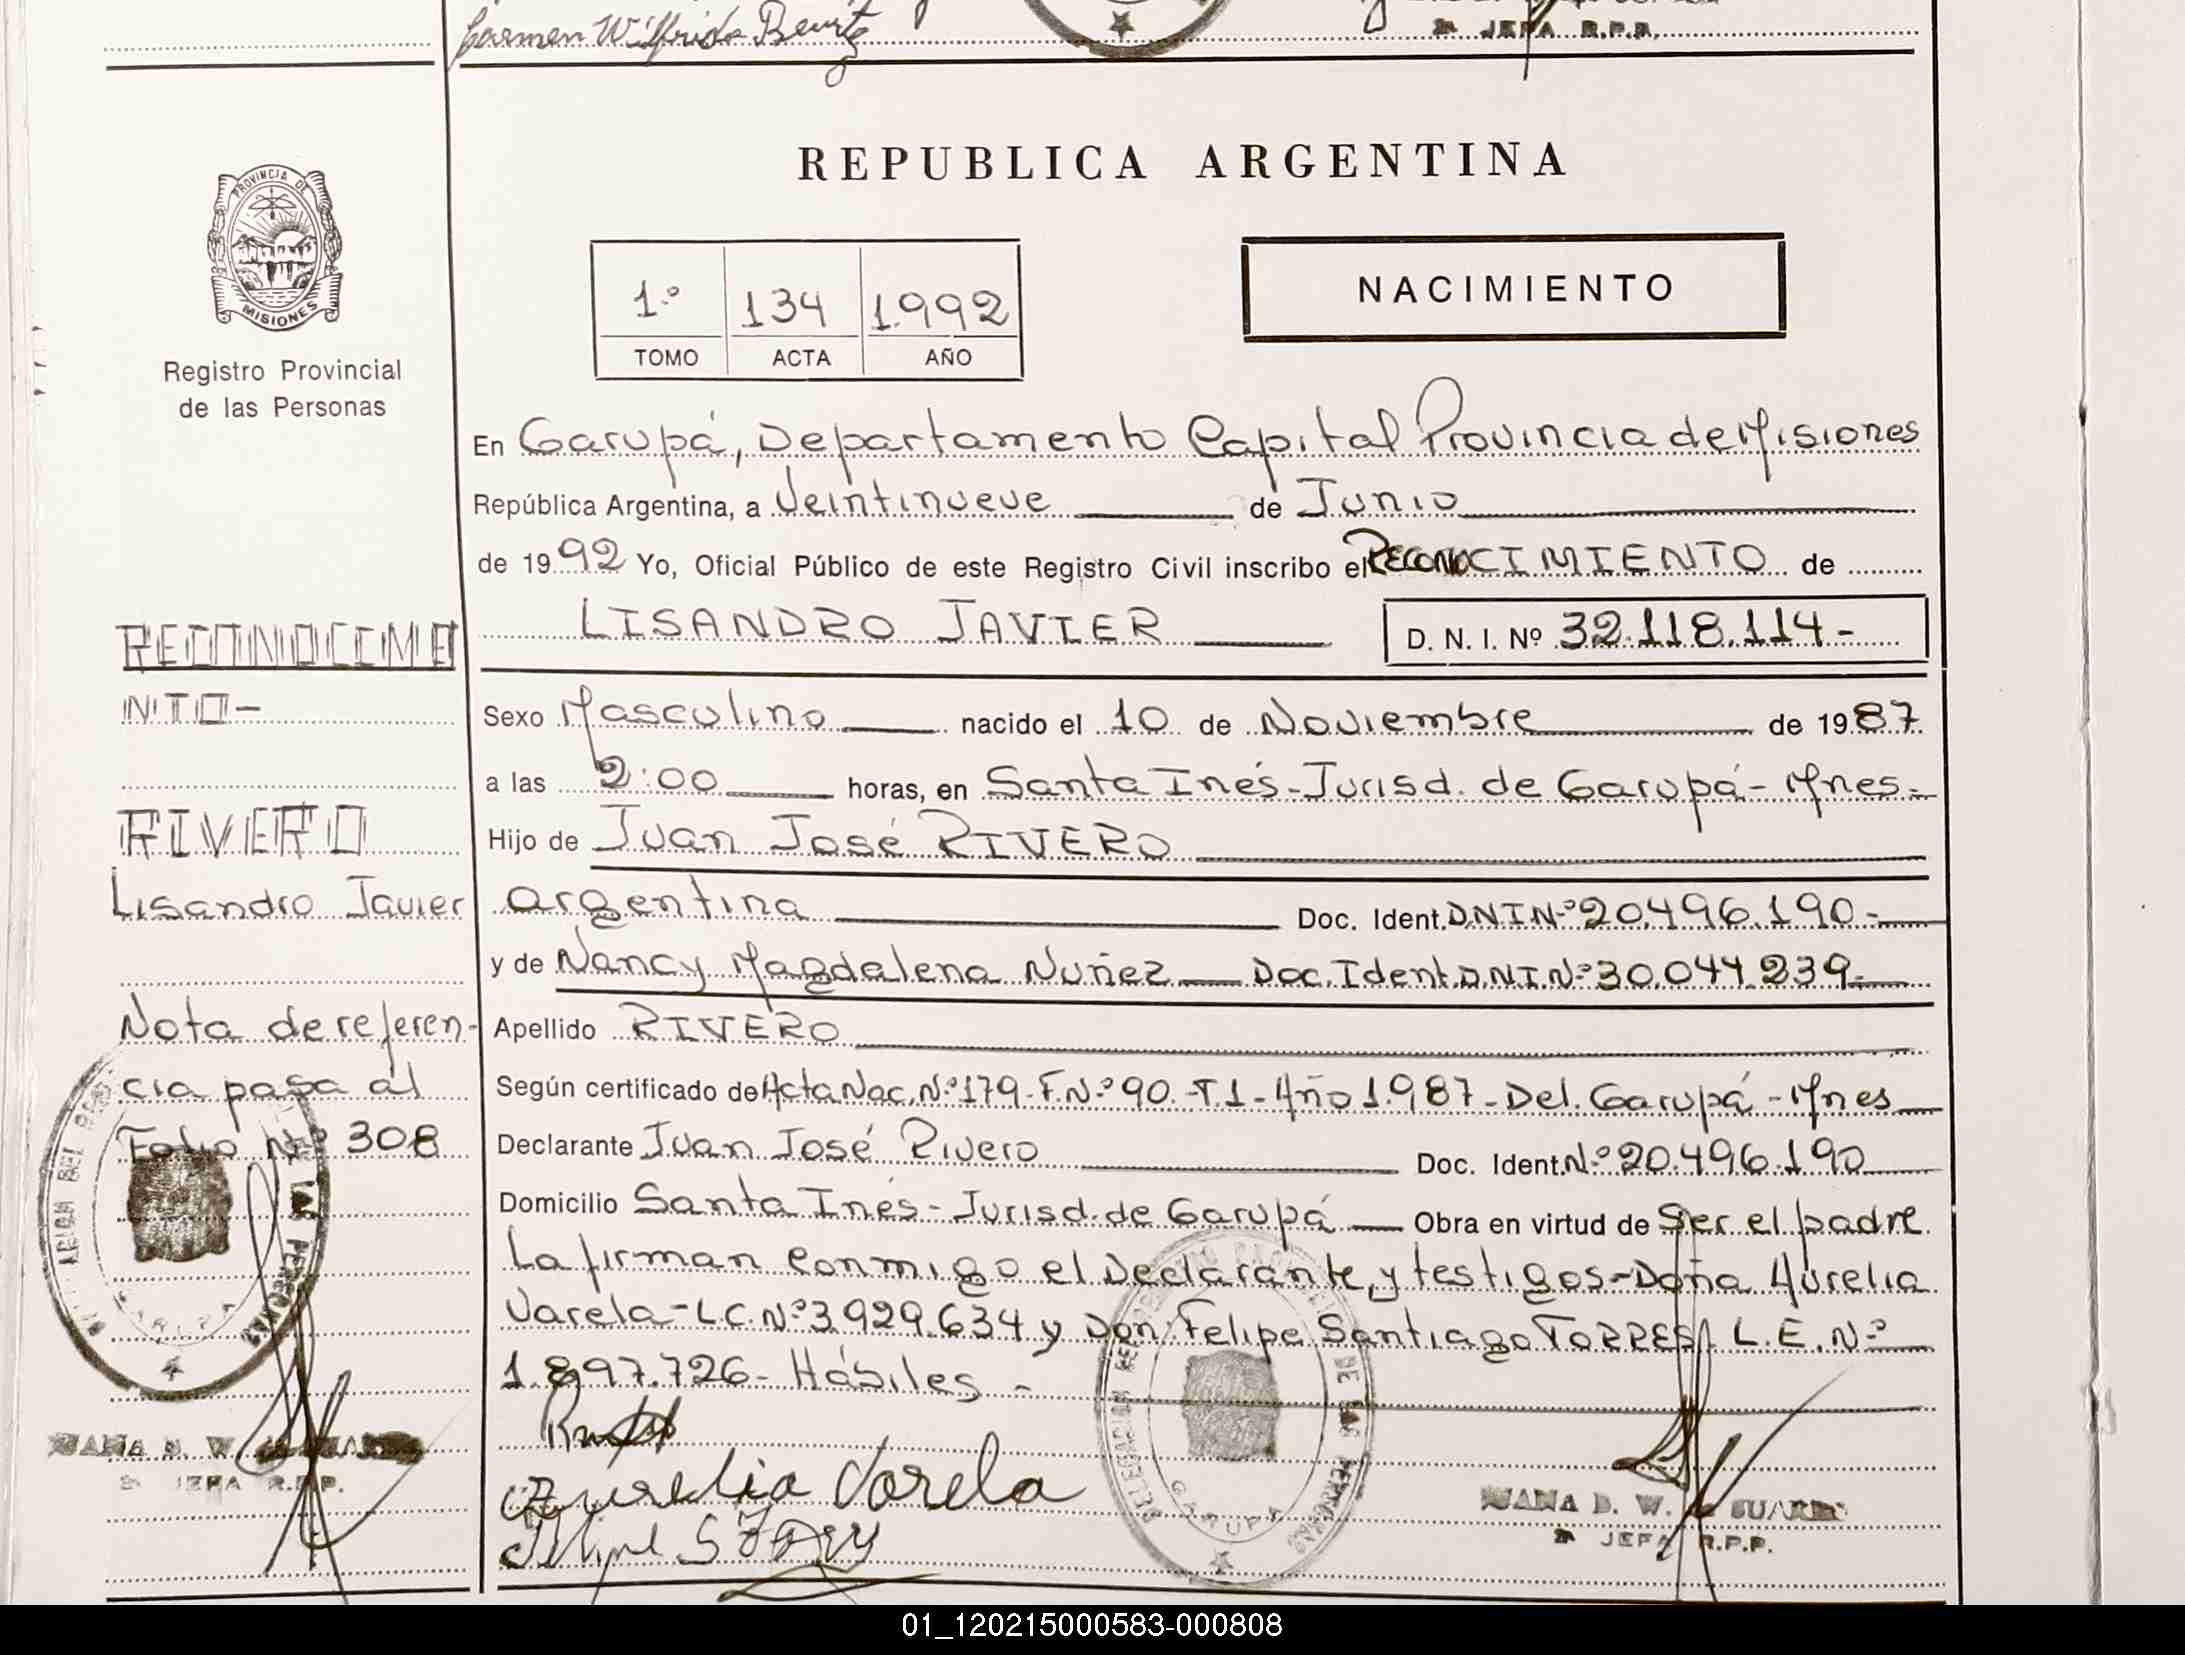 Carmen Wilfrido Benitez
JEFA R.P.P.
PROVINCIA DE
MISIONES
Registro Provincial
de las Personas
REPUBLICA ARGENTINA
1.º 134 1.992
TOMO ACTA AÑO
NACIMIENTO
En Garupá, Departamento Capital Provincia de Misiones
República Argentina, a Veintinueve de Junio
de 1992 Yo, Oficial Público de este Registro Civil inscribo el RECONOCIMIENTO de
LISANDRO JAVIER D. N. I. Nº 32.118.114-
Sexo Masculino nacido el 10 de Noviembre de 1987
a las 2:00 horas, en Santa Inés-Jurisd. de Garupá-Mnes-
Hijo de Juan José RIVERO
argentina Doc. Ident. D.N.I.Nº 20.496.190-
y de Nancy Magdalena Nuñez Doc. Ident. D.N.I.Nº 30.044.239-
Apellido RIVERO
Según certificado de Acta Nac. Nº 179-F.Nº 90-T.1-Año 1.987-Del. Garupá-Mnes
Declarante Juan José Rivero Doc. Ident. Nº 20.496.190
Domicilio Santa Inés-Jurisd. de Garupá Obra en virtud de Ser el padre
La firman conmigo el Declarante, y testigos-Doña Aurelia
Varela-L.C.Nº 3.929.634 y Don: Felipe Santiago TORRES L.E.Nº
1.897.726- Hábiles -
Aurelia Varela
RECONOCIMIE
NTO-
RIVERO
Lisandro Javier
Nota de referen-
cia pasa al
Folio Nº 308
JEFA R.P.P.
DELEGACION DEL REGISTRO PROVINCIAL DE LAS PERSONAS
GARUPA
JUANA D. W.
JEFA R.P.P.
01_120215000583-000808